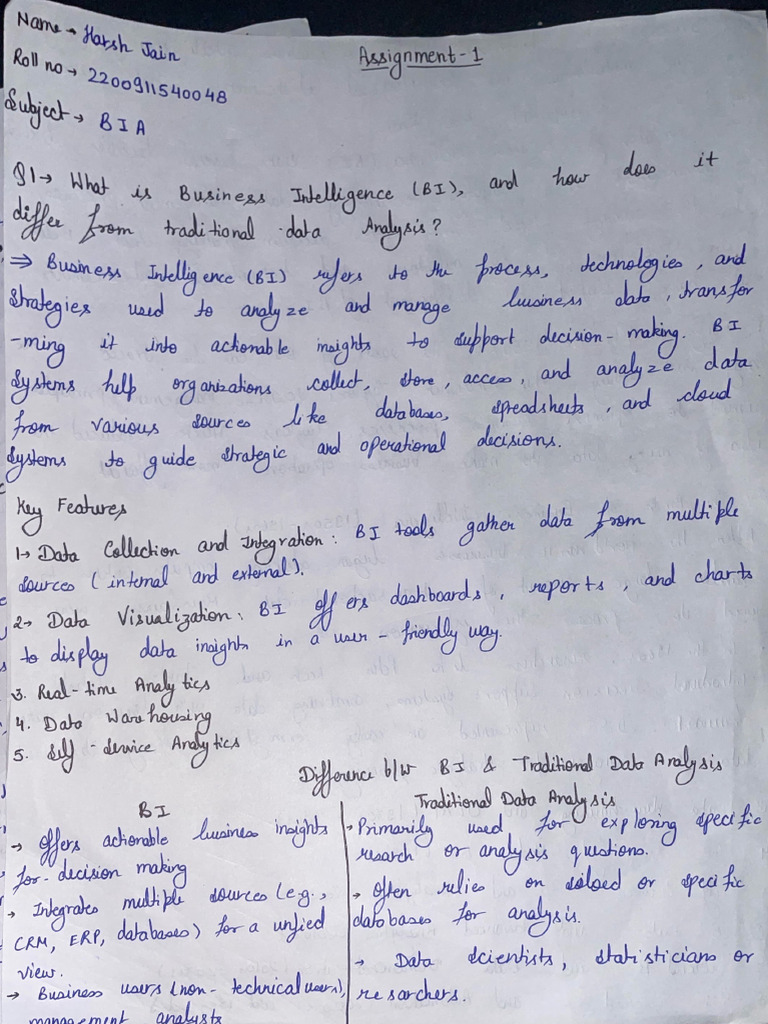 Name → Harsh Jain
Assignment-1
Roll no → 2200911540048
Subject → BIA
Q1→ What is Business Intelligence (BI), and how does it
differ from traditional data Analysis?
⇒ Business Intelligence (BI) refers to the process, technologies, and
strategies used to analyze and manage business data, transfor
-ming it into actionable insights to support decision-making. BI
systems help organizations collect, store, access, and analyze data
from various sources like databases, spreadsheets, and cloud
systems to guide strategic and operational decisions.
Key Features
1→ Data Collection and Integration: BI tools gather data from multiple
sources (internal and external).
2→ Data Visualization: BI offers dashboards, reports, and charts
to display data insights in a user-friendly way.
3. Real-time Analytics
4. Data Warehousing
5. Self-service Analytics
Difference b/w BI & Traditional Data Analysis
BI
→ Offers actionable business insights
for decision making
→ Integrates multiple sources (eg.,
CRM, ERP, databases) for a unfied
view.
→ Business users (non-technical users),
management analysts
Traditional Data Analysis
→ Primarily used for exploring specific
research or analysis questions.
→ Often relies on siloed or specific
databases for analysis.
→ Data scientists, statisticians or
researchers.